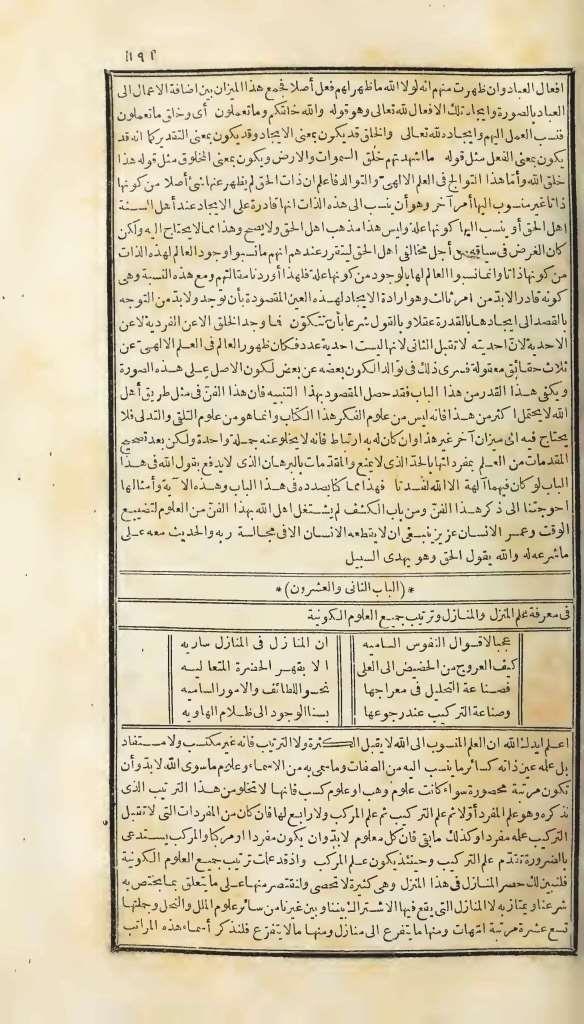 ١٩٢
افعال العباد وان ظهرت منهم انه لولا الله ما ظهر لهم فعل أصلا فجمع هذا الميزان بين اضافة الاعمال الى
العباد بالصورة وايجاد تلك الافعال لله تعالى وهو قوله والله خلقكم وما تعملون أى وخلق ما تعملون
فنسب العمل اليهم وايجاده لله تعالى والخلق قد يكون بمعنى الايجاد وقد يكون بمعنى التقدير كما انه قد
يكون بمعنى الفعل مثل قوله ما اشهدتهم خلق السموات والارض ويكون بمعنى المخلوق مثل قوله هذا
خلق الله وأما هذا التوالج فى العلم الالهىّ والتوالد فاعلم ان ذات الحق لم يظهر عنها شئ أصلا من كونها
ذاتا غير منسوب اليها أمر آخر وهو أن ينسب الى هذه الذات انها قادرة على الايجاد عند أهل السنة
اهل الحق أو ينسب اليها كونها علة وليس هذا مذهب اهل الحق ولا يصح وهذا مما لا يحتاج اليه ولكن
كان الغرض فى سياقه من أجل مخالفى اهل الحق ليتقرر عندهم انهم ما نسبوا وجود العالم لهذه الذات
من كونها ذاتا وانما نسبوا العالم لها بالوجود من كونها علة فلهذا أوردنا مقالتهم ومع هذه النسبة وهى
كونه قادرا لابدّ من امر ثالث وهو ارادة الايجاد لهذه العين المقصودة بأن توجد ولابدّ من التوجه
بالقصد الى ايجادها بالقدرة عقلا وبالقول شرعا بأن تتكوّن فما وجد الخلق الا عن الفردية لا عن
الاحدية لانّ احديته لا تقبل الثانى لانها ليست احدية عدد فكان ظهور العالم فى العلم الالهىّ عن
ثلاث حقائق معقولة فسرى ذلك فى توالد الكون بعضه عن بعض لكون الاصل على هذه الصورة
ويكفى هذا القدر من هذا الباب فقد حصل المقصود بهذا التنبيه فان هذا الفنّ فى مثل طريق أهل
الله لا يحتمل اكثر من هذا فانه ليس من علوم الفكر هذا الكتاب وانما هو من علوم التلقى والتدلى فلا
يحتاج فيه الى ميزان آخر غير هذا وان كان له به ارتباط فانه لا يخلو عنه جملة واحدة ولكن بعد تصحيح
المقدمات من العلم بمفرداتها بالحدّ الذى لا يمنع والمقدمات بالبرهان الذى لا يدفع بقول الله فى هذا
الباب لو كان فيهما آلهة الا الله لفسدتا فهذا مما كنا بصدده فى هذا الباب وهذه الآية وأمثالها
احوجتنا الى ذكر هذا الفنّ ومن باب الكشف لم يشتغل اهل الله بهذا الفنّ من العلوم لتضييع
الوقت وعمر الانسان عزيز ينبغى ان لا يقطعه الانسان الا فى مجالسة ربه والحديث معه على
ما شرعه له والله يقول الحق وهو يهدى السبيل
*(الباب الثانى والعشرون)*
فى معرفة علم المنزل والمنازل وترتيب جميع العلوم الكونية
عجبا لاقوال النفوس الساميه ان المنازل فى المنازل ساريه
كيف العروج من الحضيض الى العلى الا بقهر الحضرة المتعاليه
فصناعة التحليل فى معراجها نحو اللطائف والامور الساميه
وصناعة التركيب عند رجوعها بسنا الوجود الى ظلام الهاويه
اعلم ايدك الله ان العلم المنسوب الى الله لا يقبل الكثرة ولا الترتيب فانه غير مكتسب ولا مستفاد
بل علمه عين ذاته كسائر ما ينسب اليه من الصفات وما سمى به من الاسماء وعلوم ما سوى الله لابدّ وأن
تكون مرتبة محصورة سواء كانت علوم وهب او علوم كسب فانها لا تخلو من هذا الترتيب الذى
نذكره وهو علم المفرد أوّلا ثم علم التركيب ثم علم المركب ولا رابع لها فان كان من المفردات التى لا تقبل
التركيب علمه مفردا وكذلك ما بقى فان كل معلوم لابدّ وان يكون مفردا او مركبا والمركب يستدعى
بالضرورة تقدّم علم التركيب وحينئذ يكون علم المركب واذ قد علمت ترتيب جميع العلوم الكونية
فلنبين لك حصر المنازل فى هذا المنزل وهى كثيرة لا تحصى ولنقتصر منها على ما يتعلق بما يختص به
شرعنا ويمتاز به لا المنازل التى يقع فيها الاشتراك بيننا وبين غيرنا من سائر علوم الملل والنحل وجملتها
تسع عشرة مرتبة امّهات ومنها ما يتفرع الى منازل ومنها ما لا يتفرّع فلنذكر أسماء هذه المراتب